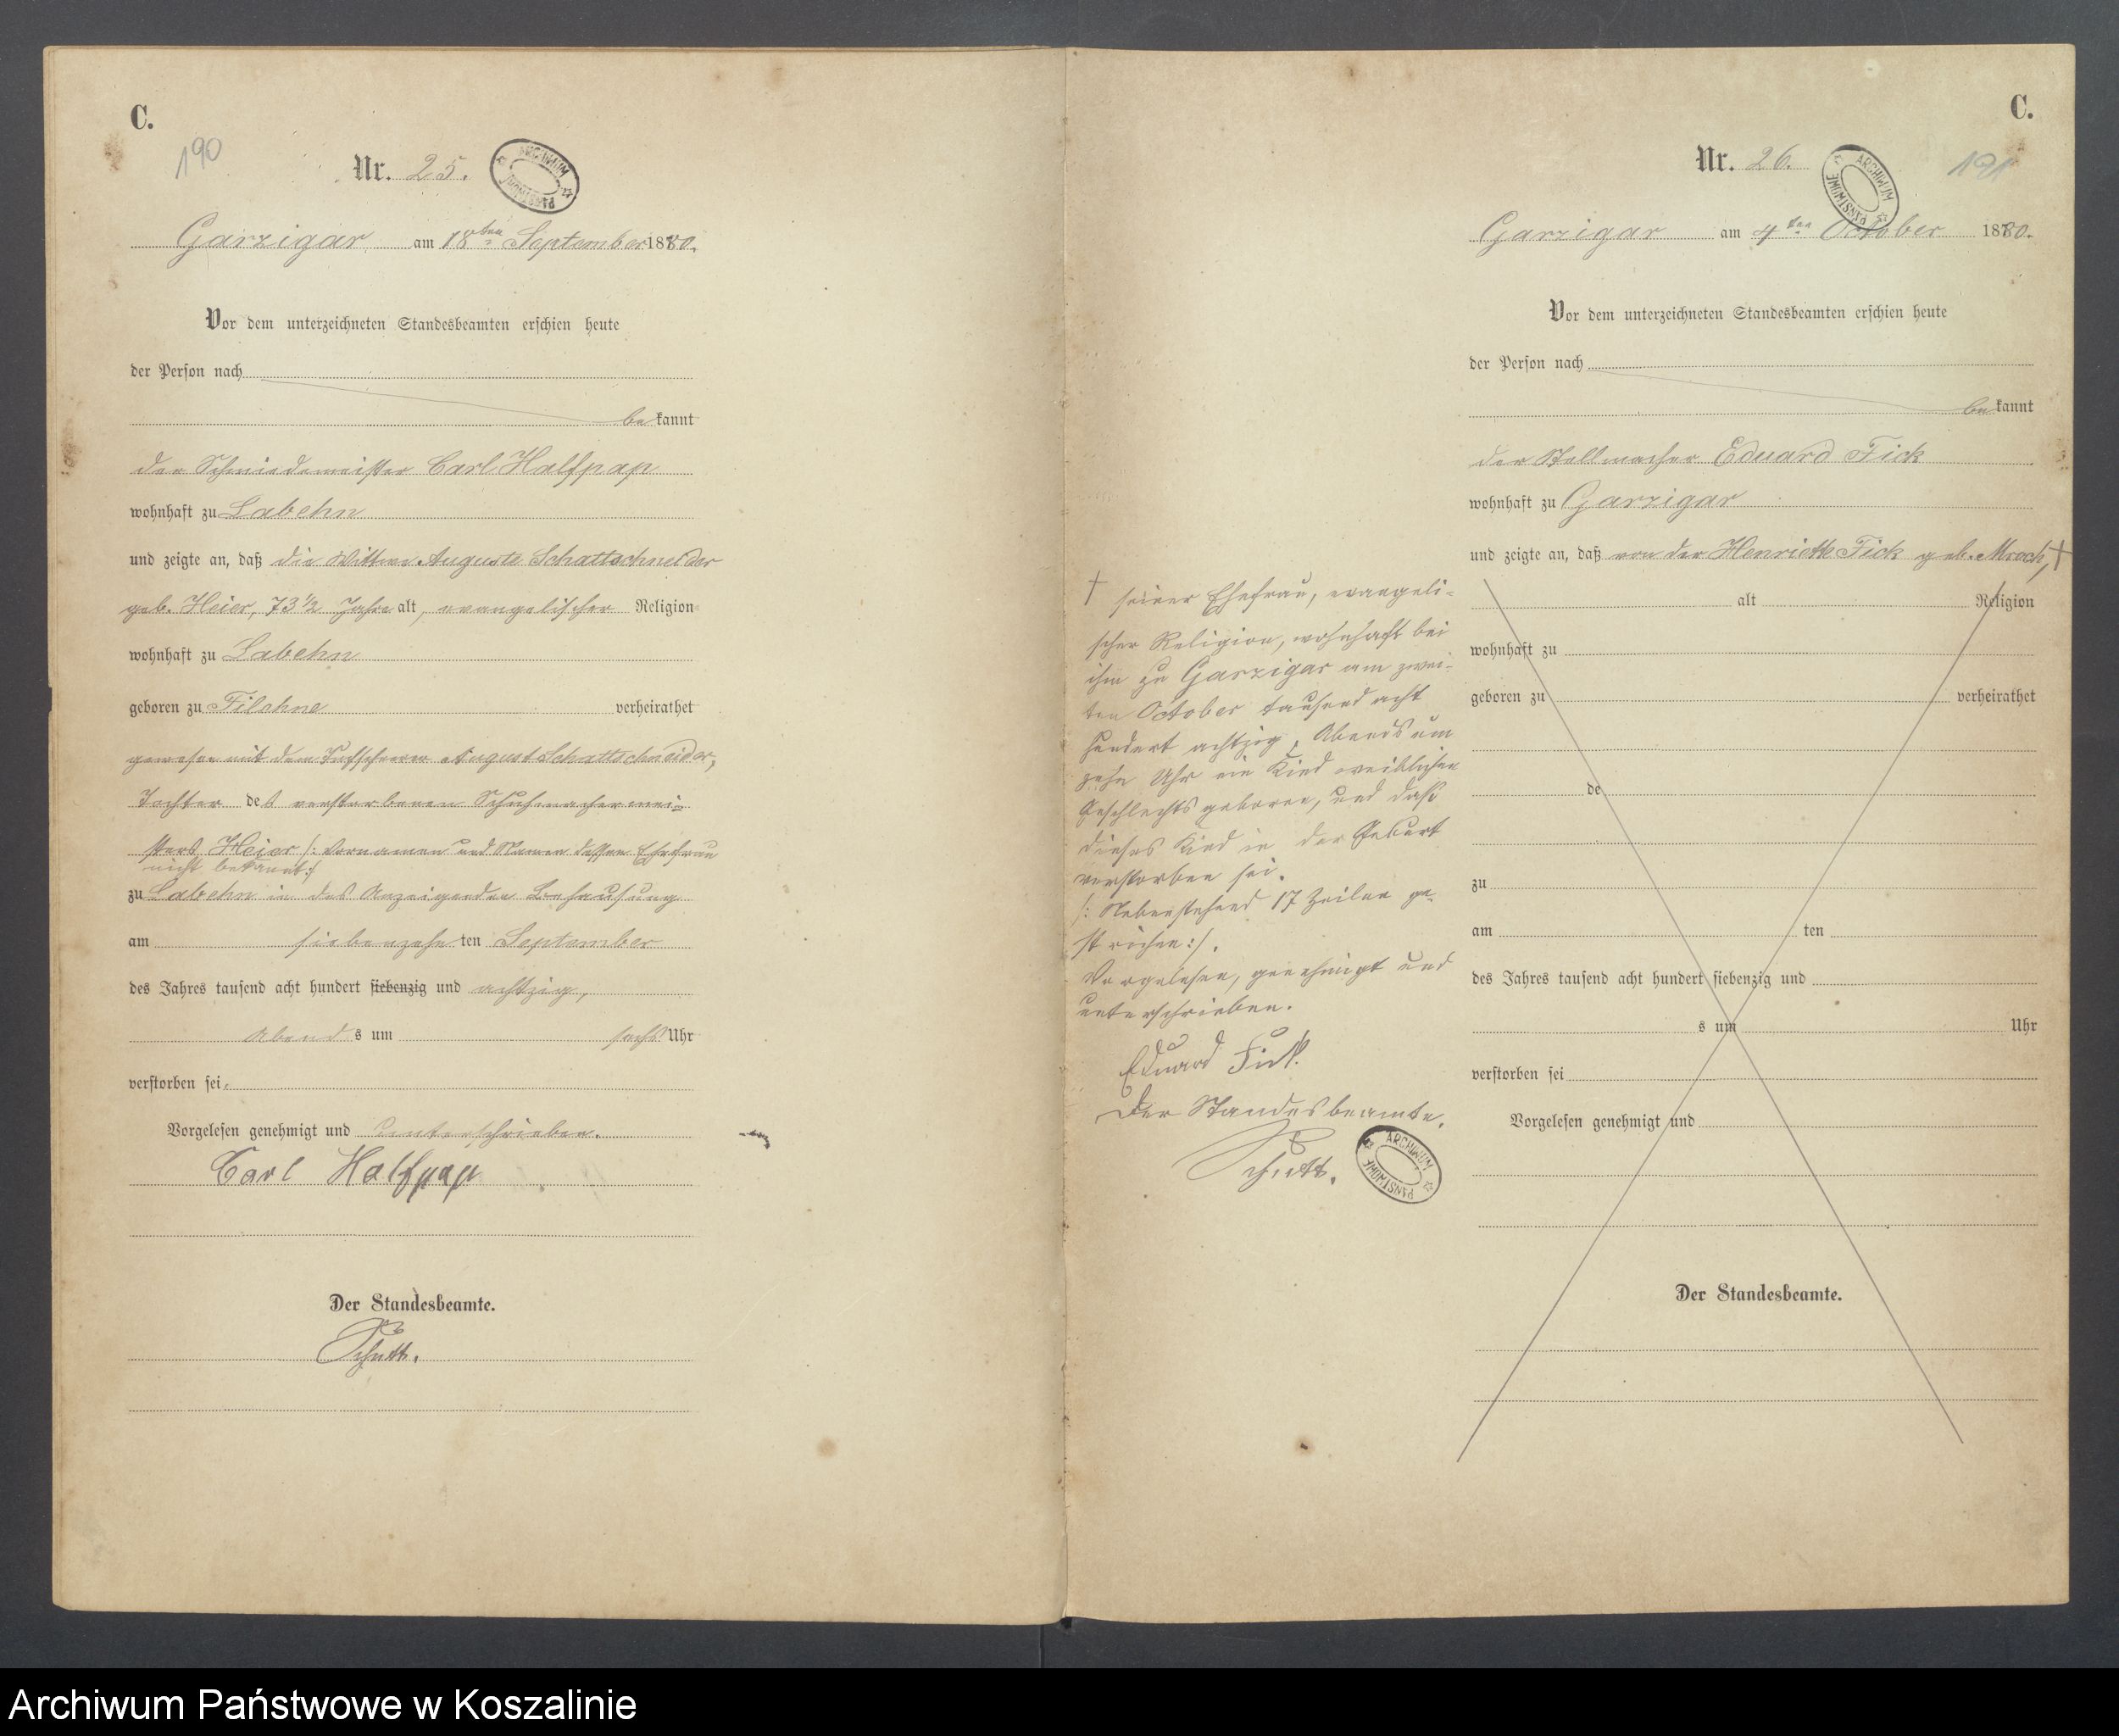 C.
190
Nr. 25.
ARCHIWUM PAŃSTWOWE
Garzigar am 18ten September 1880.
Vor dem unterzeichneten Standesbeamten erschien heute
der Person nach
bekannt
der Schmiedemeister Carl Halfpap
wohnhaft zu Labehn
und zeigte an, daß die Wittwe Auguste Schattschneider
geb. Heier, 73 1/2 Jahre alt, evangelischer Religion
wohnhaft zu Labehn
geboren zu Filehne verheirathet
gewesen mit dem August Schattschneider,
Tochter des verstorbenen Schuhmachermei-
sters Heier /: Vornamen und Namen dessen Ehefrau
nicht bekannt :/
zu Labehn in des Anzeigenden Behausung
am siebenzehnten September
des Jahres tausend acht hundert siebenzig und achtzig,
Abends um sechs Uhr
verstorben sei.
Vorgelesen genehmigt und unterschrieben.
Carl Halfpap
Der Standesbeamte.
C.
Nr. 26.
191
ARCHIWUM PAŃSTWOWE
Garzigar am 4ten October 1880.
Vor dem unterzeichneten Standesbeamten erschien heute
der Person nach
bekannt
der Stellmacher Eduard Fick
wohnhaft zu Garzigar
und zeigte an, daß von der Henriette Fick geb. Mroch, †
alt Religion
wohnhaft zu
geboren zu verheirathet
de
zu
am ten
des Jahres tausend acht hundert siebenzig und
s um Uhr
verstorben sei
Vorgelesen genehmigt und
Der Standesbeamte.
† seiner Ehefrau, evangeli-
scher Religion, wohnhaft bei
ihm zu Garzigar am zwei-
ten October tausend acht
hundert achtzig, Abends um
zehn Uhr ein Kind weiblichen
Geschlechts geboren, und daß
dieses Kind in der Geburt
verstorben sei.
/: Nebenstehend 17 Zeilen ge-
strichen :/.
Vorgelesen, genehmigt und
unterschrieben.
Eduard Fick.
Der Standesbeamte.
ARCHIWUM PAŃSTWOWE
Archiwum Państwowe w Koszalinie